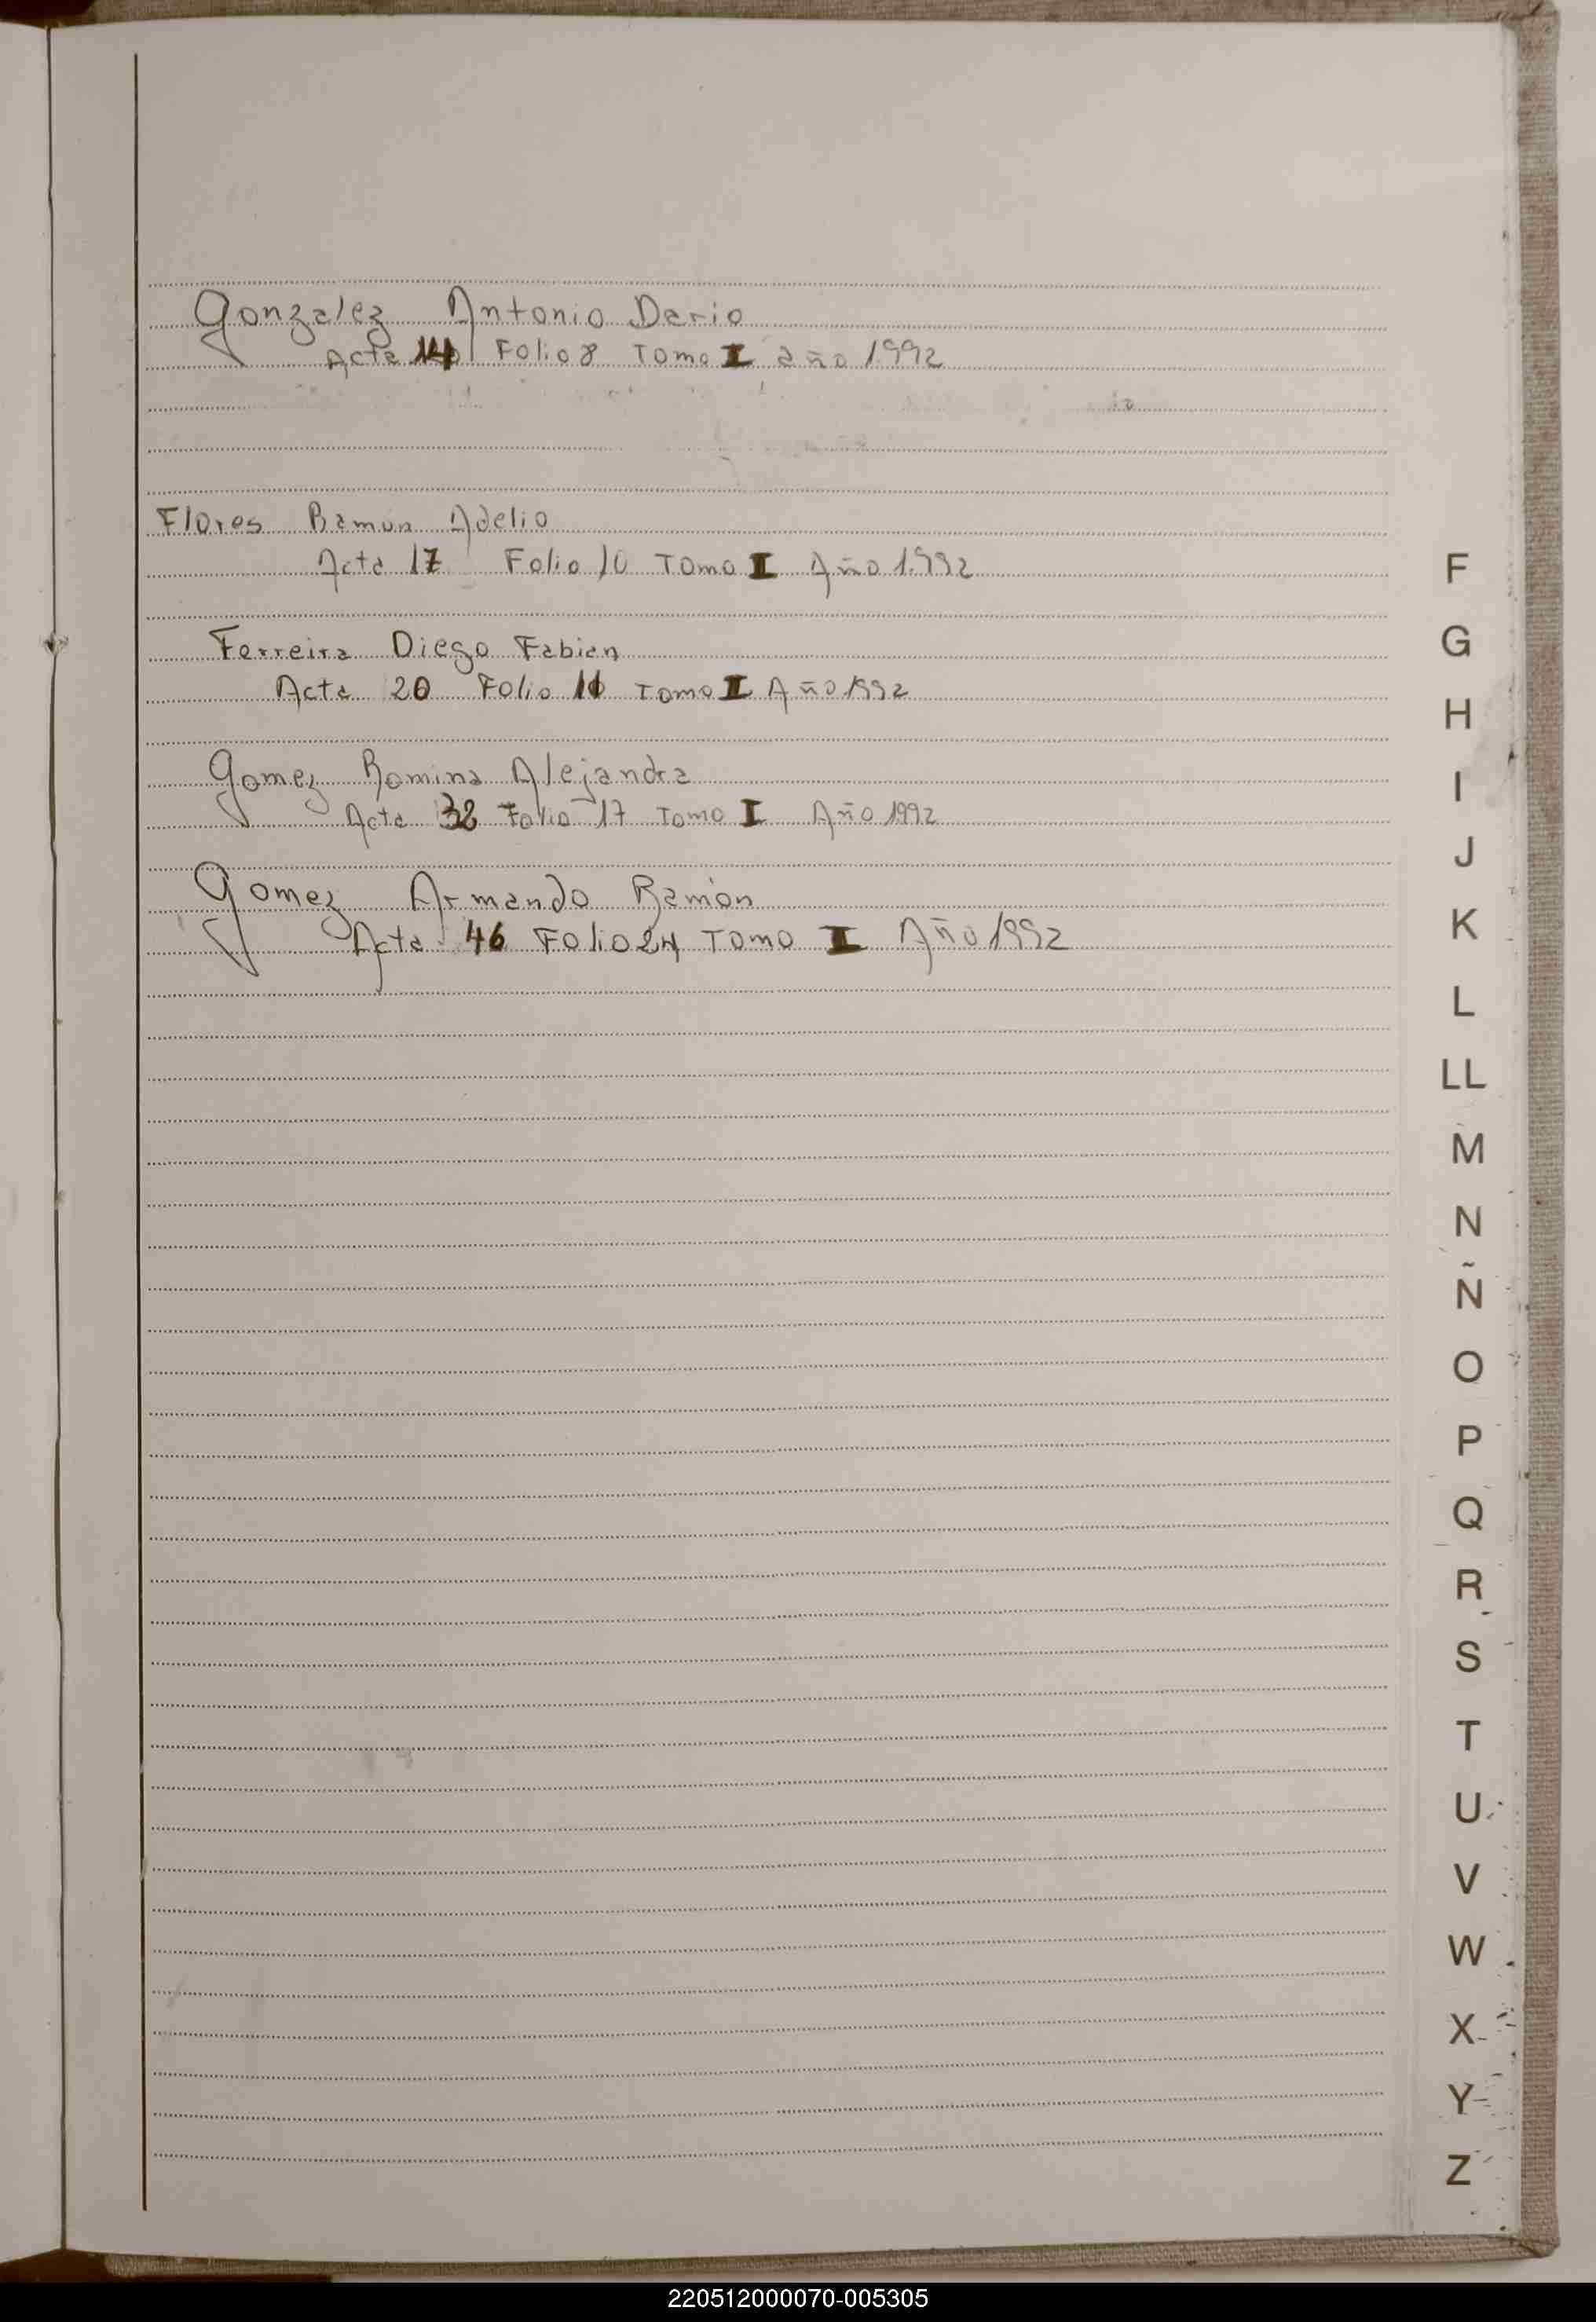 Gonzalez Antonio Dario
Acta 14 Folio 8 Tomo I año 1992
Flores Ramon Adelio
Acta 17 Folio 10 Tomo I Año 1.992
Ferreira Diego Fabian
Acta 20 Folio 11 Tomo I Año 1992
Gomez Romina Alejandra
Acta 32 Folio 17 Tomo I Año 1992
Gomez Armando Ramón
Acta 46 Folio 24 Tomo I Año 1992
F
G
H
I
J
K
L
LL
M
N
Ñ
O
P
Q
R
S
T
U
V
W
X
Y
Z
220512000070-005305